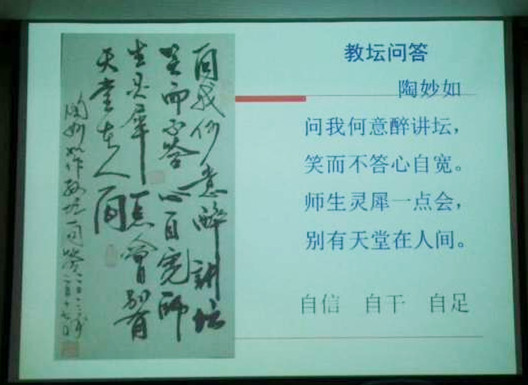 问我何意醉讲坛
笑而不答心自宽师
生灵犀一点會别有
天堂在人间
陶妙如作教坛问答
教坛问答
陶妙如
问我何意醉讲坛，
笑而不答心自宽。
师生灵犀一点会，
别有天堂在人间。
自信 自干 自足